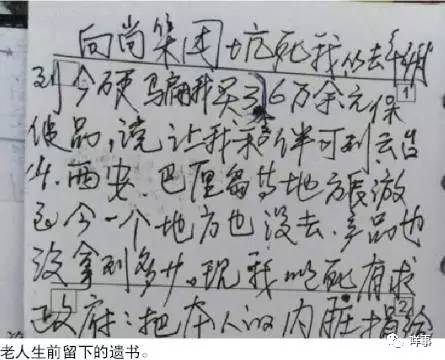 向尚集团坑死我的去年
到今硬骗我买了6万余元保 1
健品，说让我和老伴可到云台
山.西安.巴厘岛等地方旅游
至今一个地方也没去.产品也
没拿到多少。现我以死有求
政府：把本人的内脏捐给 2
老人生前留下的遗书。